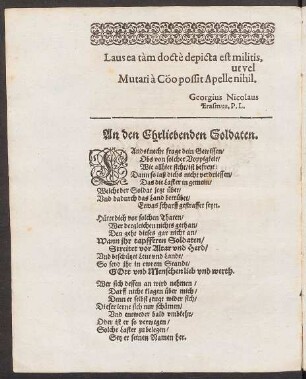 Laus ea tàm doctè depicta est militis,
ut vel
Mutari à Cöo possit Apelle nihil.
Georgius Nicolaus
Erasmus, P. L.
An den Ehrliebenden Soldaten.
LAndsknecht frage dein Gewissen/
Obs von solcher Uppigkeit/
Wie allhier steht/ ist befreyt:
Dann so laß dichs nicht verdriessen/
Das die Laster in gemein/
Welche der Soldat jetzt über/
Und dadurch das Land betrübet/
Etwas scharff gestraffet seyn.
Hütet dich vor solchen Thaten/
Wer dergleichen nichts gethan/
Den geht dieses gar nicht an/
Wann ihr tapfferen Soldaten/
Streitet vor Altar und Herd/
Und beschützet Leut und Lande/
So seyd ihr in ewrem Stande/
GOtt und Menschen lieb und werth.
Wer sich dessen an wird nehmen/
Darff nicht klagen über mich/
Denn er selbst zeuget wider sich/
Dieser lerne sich nur schämen/
Und entweder bald umbkehr/
Oder ist er so verwegen/
Solche Laster zu belegen/
Sey er seinen Namen her.